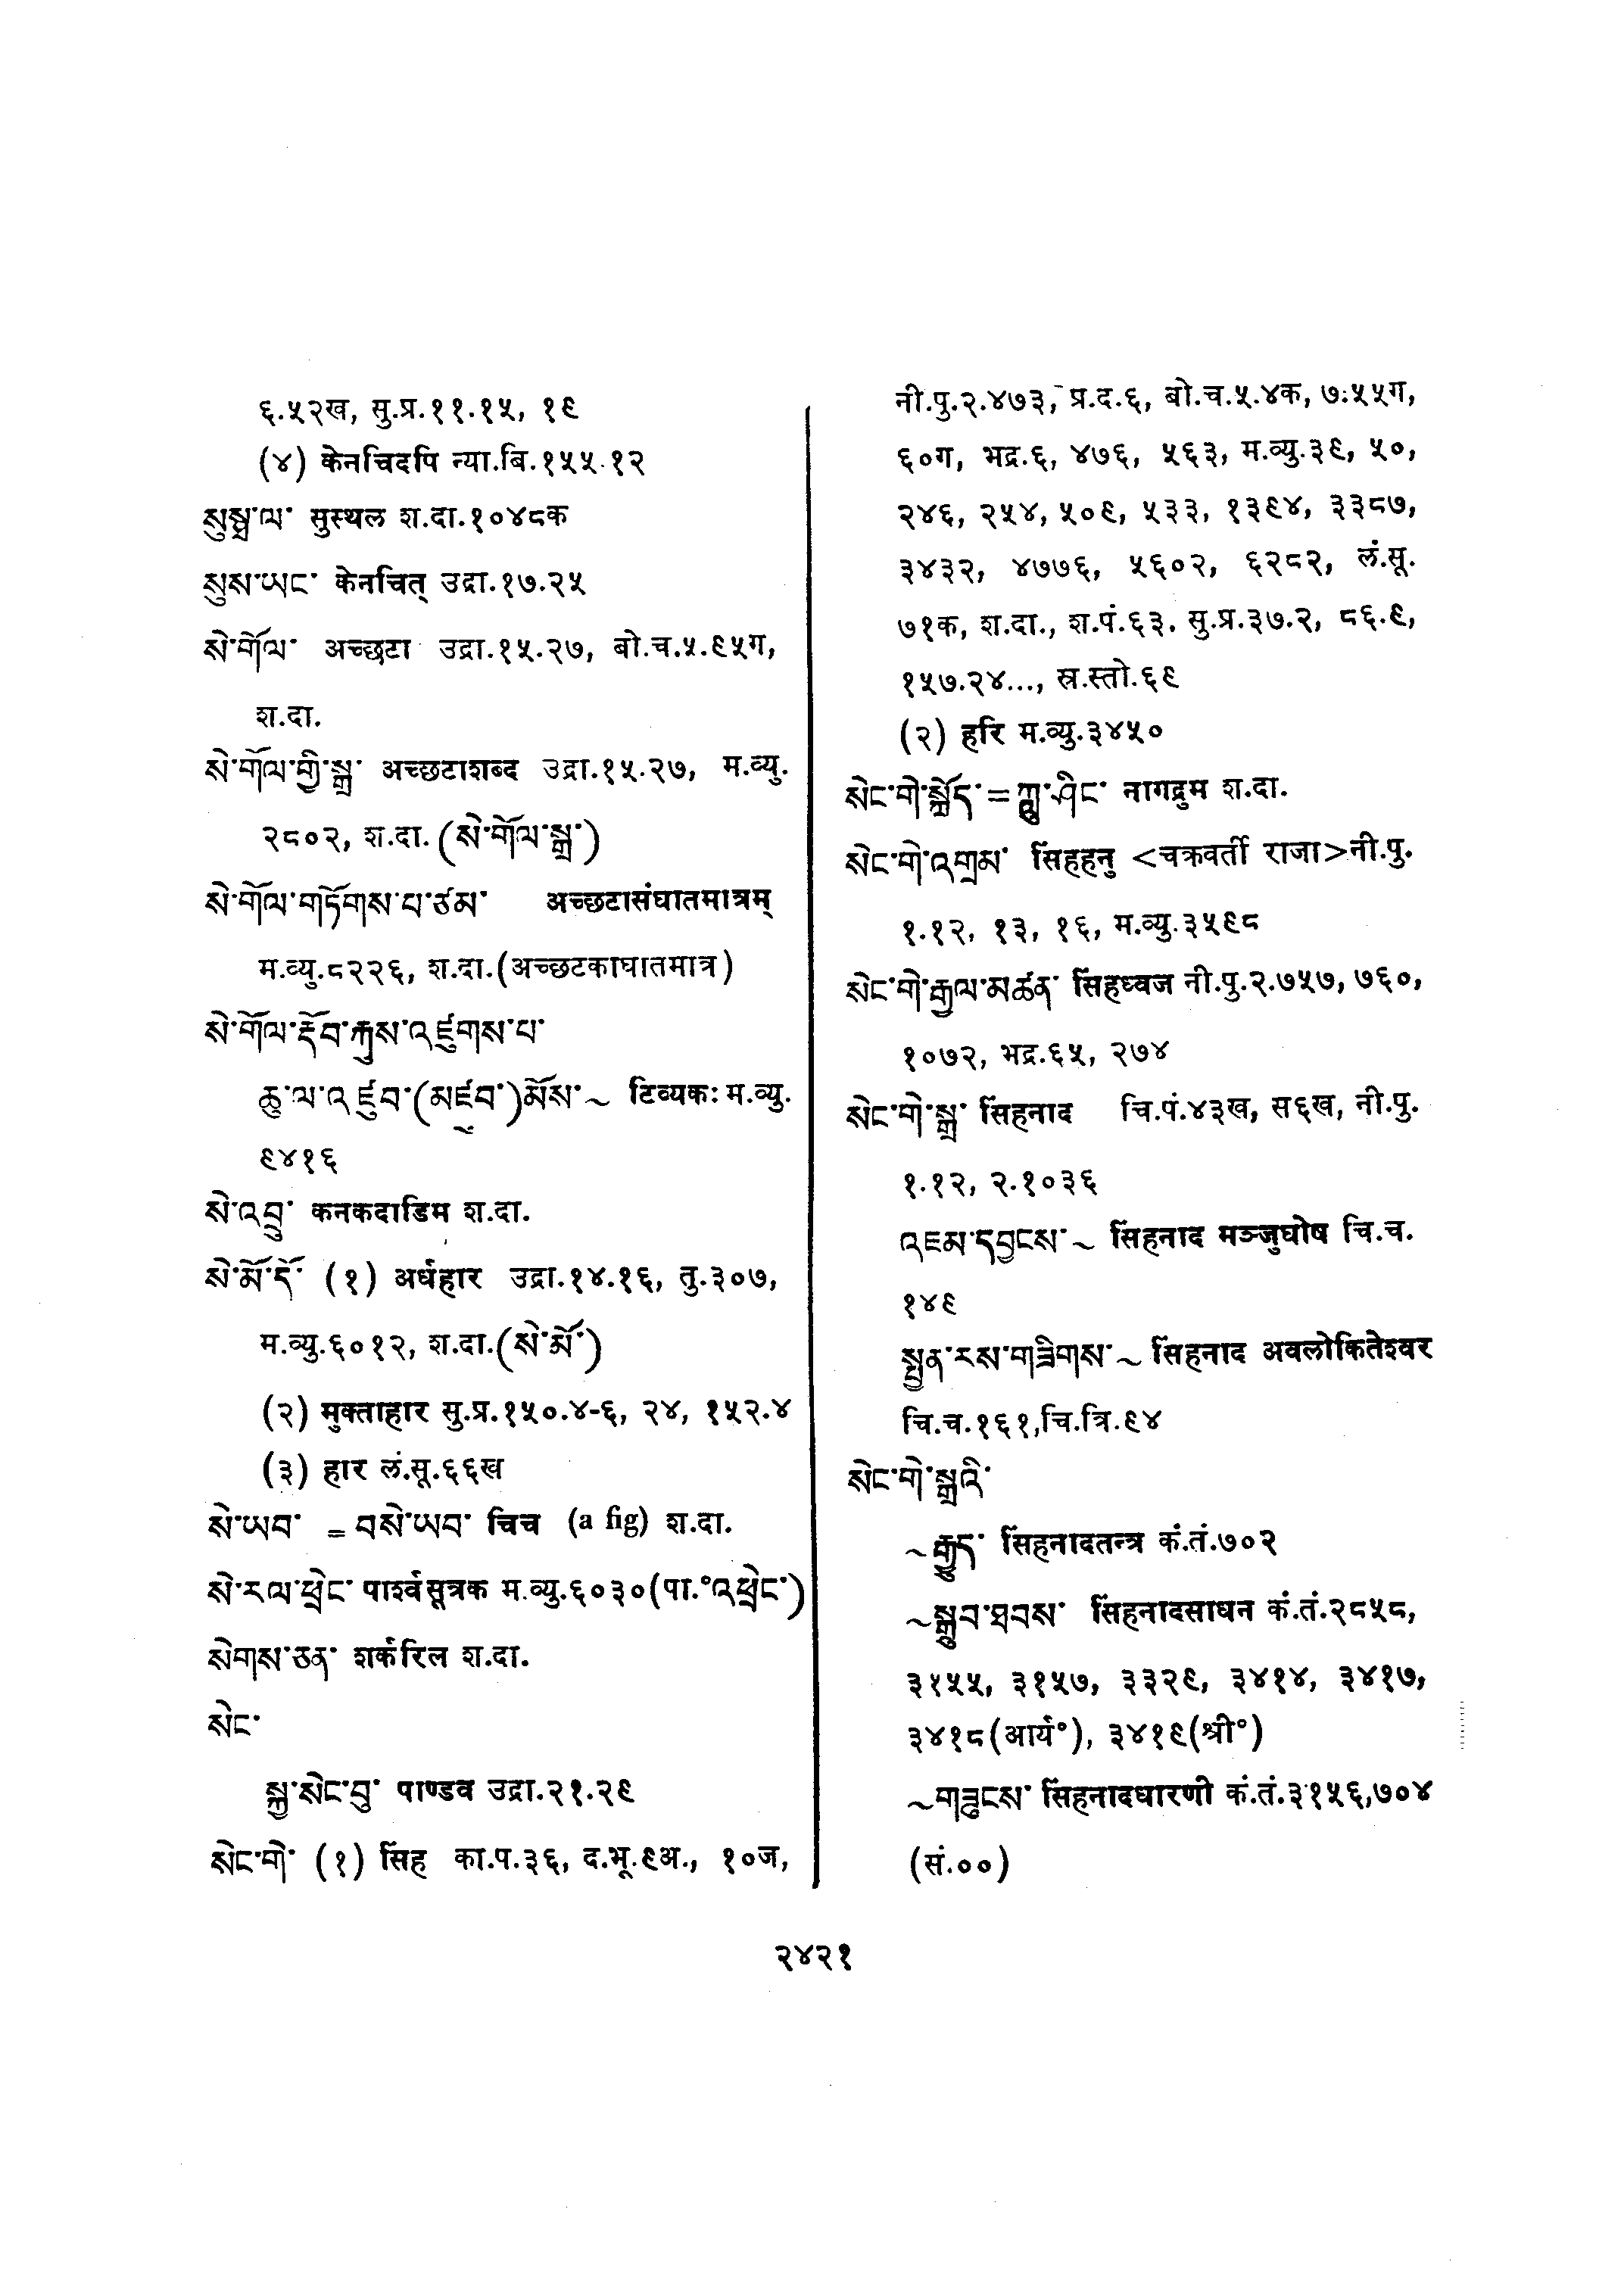 ६.५२ख, सु.प्र.११.१५, १९
(४) केनचिदपि न्या.बि.१५५.१२
སུསྠ་ལ་ सुस्थल श.दा.१०४८क
སུས་ཡང་ केनचित् उद्रा.१७.२५
སེ་གོལ་ अच्छटा उद्रा.१५.२७, बो.च.५.९५ग,
श.दा.
སེ་གོལ་གྱི་སྒྲ་ अच्छटाशब्द उद्रा.१५.२७, म.व्यु.
२८०२, श.दा.(སེ་གོལ་སྒྲ་)
སེ་གོལ་གཏོགས་པ་ཙམ་ अच्छटासंघातमात्रम्
म.व्यु.८२२६, श.दा.(अच्छटकाघातमात्र)
སེ་གོལ་རྡོབ་རྐུས་འཛུགས་པ་
ཆུ་ལ་འཛུབ་(མཛུབ་)མོས་~ टिव्यकः म.व्यु.
९४१६
སེ་འབྲུ་ कनकदाडिम श.दा.
སེ་མོ་དོ་ (१) अर्धहार उद्रा.१४.१६, तु.३०७,
म.व्यु.६०१२, श.दा.(སེ་མོ་)
(२) मुक्ताहार सु.प्र.१५०.४-६, २४, १५२.४
(३) हार लं.सू.६६ख
སེ་ཡབ་ = བསེ་ཡབ་ चिच (a fig) श.दा.
སེ་རལ་ཕྲེང་ पार्श्वसूत्रक म.व्यु.६०३०(पा.°འཕྲེང་)
སེགས་ཅན་ शर्करिल श.दा.
སེང་
སྐྱ་སེང་བུ་ पाण्डव उद्रा.२१.२९
སེང་གེ་ (१) सिंह का.प.३६, द.भू.९अ., १०ज,
नी.पु.२.४७३, प्र.द.६, बो.च.५.४क, ७:५५ग,
६०ग, भद्र.६, ४७६, ५६३, म.व्यु.३९, ५०,
२४६, २५४, ५०९, ५३३, १३९४, ३३८७,
३४३२, ४७७६, ५६०२, ६२८२, लं.सू.
७१क, श.दा., श.पं.६३, सु.प्र.३७.२, ८६.९,
१५७.२४..., स्र.स्तो.६९
(२) हरि म.व्यु.३४५०
སེང་གེ་སྐྱོད་=ཀླུ་ཤིང་ नागद्रुम श.दा.
སེང་གེ་འགྲམ་ सिंहहनु <चक्रवर्ती राजा>नी.पु.
१.१२, १३, १६, म.व्यु.३५९८
སེང་གེ་རྒྱལ་མཚན་ सिंहध्वज नी.पु.२.७५७, ७६०,
१०७२, भद्र.६५, २७४
སེང་གེ་སྒྲ་ सिंहनाद चि.पं.४३ख, स६ख, नी.पु.
१.१२, २.१०३६
འཇམ་དབྱངས་~ सिंहनाद मञ्जुघोष चि.च.
१४९
སྤྱན་རས་གཟིགས་~ सिंहनाद अवलोकितेश्वर
चि.च.१६१,चि.त्रि.९४
སེང་གེ་སྒྲའི་
~རྒྱུད་ सिंहनादतन्त्र कं.तं.७०२
~སྒྲུབ་ཐབས་ सिंहनादसाधन कं.तं.२८५८,
३१५५, ३१५७, ३३२९, ३४१४, ३४१७,
३४१८(आर्य°), ३४१९(श्री°)
~གཟུངས་ सिंहनादधारणी कं.तं.३१५६,७०४
(सं.००)
२४२१